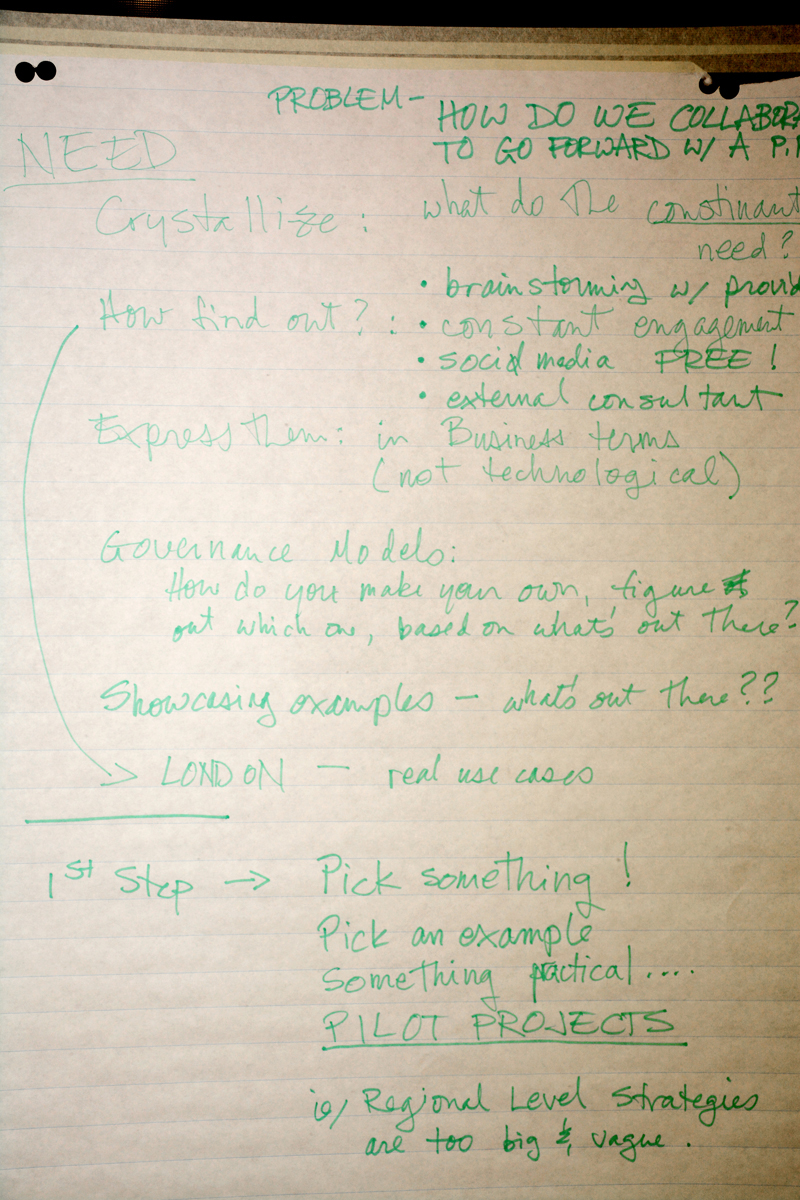 PROBLEM - HOW DO WE COLLABORA
TO GO FORWARD W/ A P.P
NEED
Crystallize : what do the constinuant
need?
• brainstorming w/ provid
How find out? : • constant engagement
• social media FREE!
• external consultant
Express them: in Business terms
(not technological)
Governance Models:
How do you make your own, figure
out which one, based on what's out there?
Showcasing examples - what's out there??
→ LONDON - real use cases
1st Step → Pick something!
Pick an example
Something practical....
PILOT PROJECTS
ie/ Regional Level Strategies
are too big &, vague.